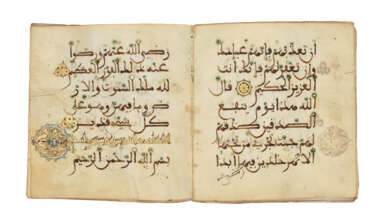 ان تعذبهم فإنهم عبادك
وان تغفر لهم فإنك أنت
العزيز الحكيم قال
الله هذا يوم ينفع
الصدقين صدقهم
لهم جنت تجري من تحتها
الانهر خلدين فيها ابدا
رضي الله عنهم ورضوا
عنه ذلك الفوز العظيم
لله ملك السموت والار
ض وما فيهن وهو على
كل شيء قدير
بسم الله الرحمن الرحيم